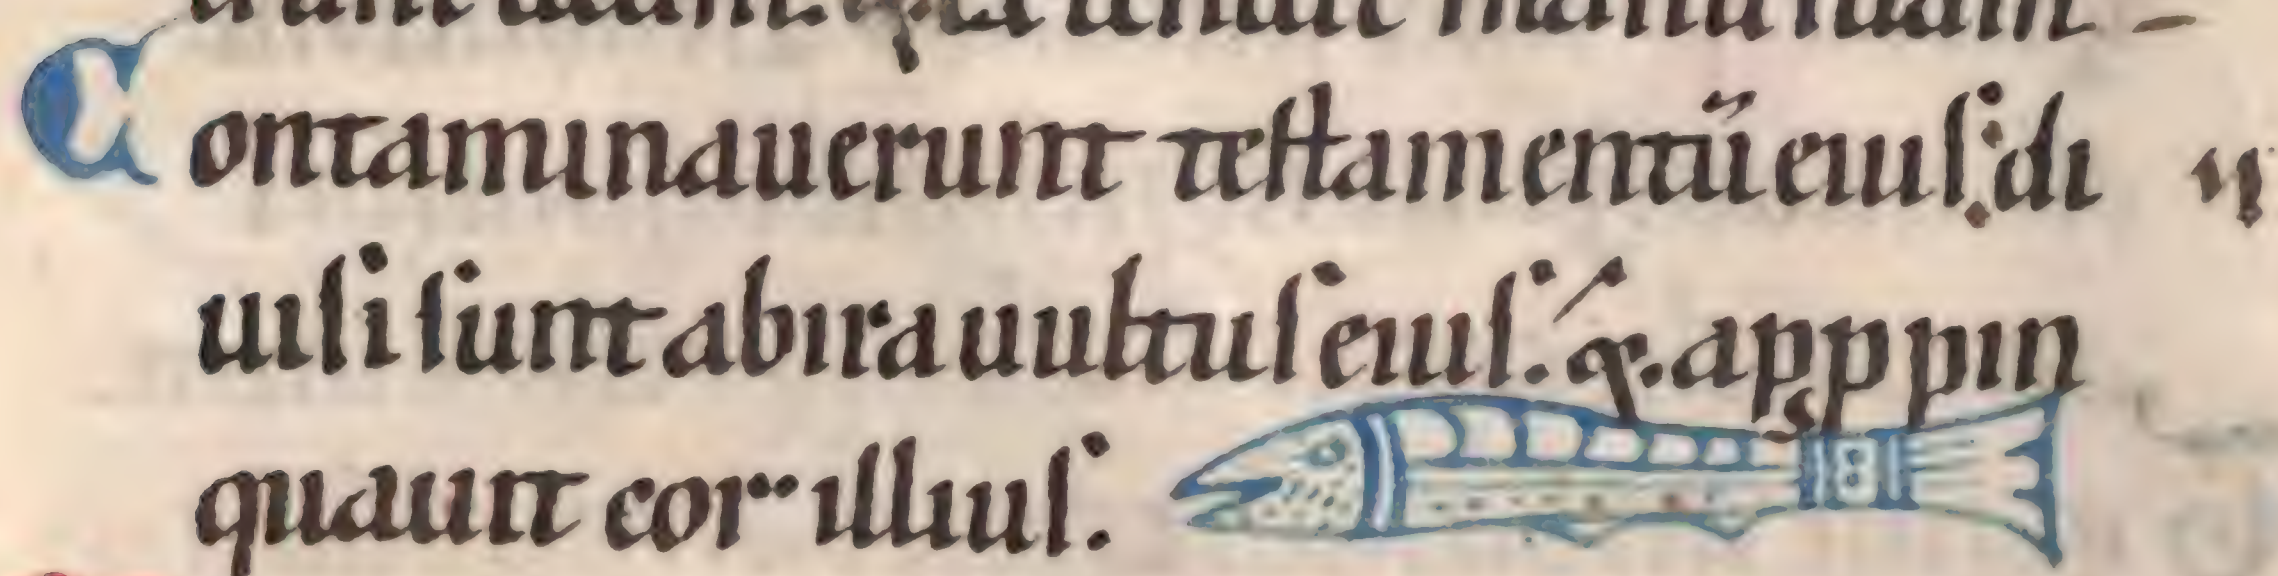 Contaminauerunt testamentū eius: di
uisi sunt ab ira uultus eius. & appropin
quauit cor illius.